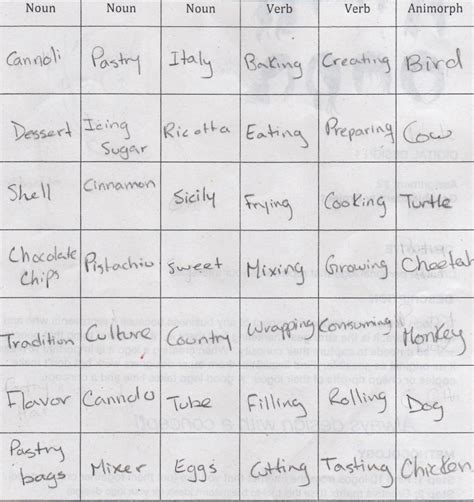 Noun Noun Noun Verb Verb Animorph
Cannoli Pastry Italy Baking Creating Bird
Dessert Icing Sugar Ricotta Eating Preparing Cow
Shell Cinnamon Sicily Frying Cooking Turtle
Chocolate Chips Pistachio Sweet Mixing Growing Cheetah
Tradition Culture Country Wrapping Consuming Monkey
Flavor Cannolo Tube Filling Rolling Dog
Pastry bags Mixer Eggs Cutting Tasting Chicken